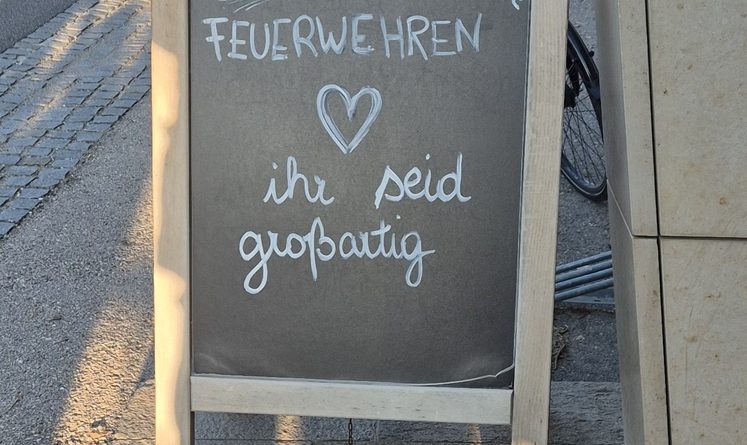 FEUERWEHREN
ihr seid
großartig